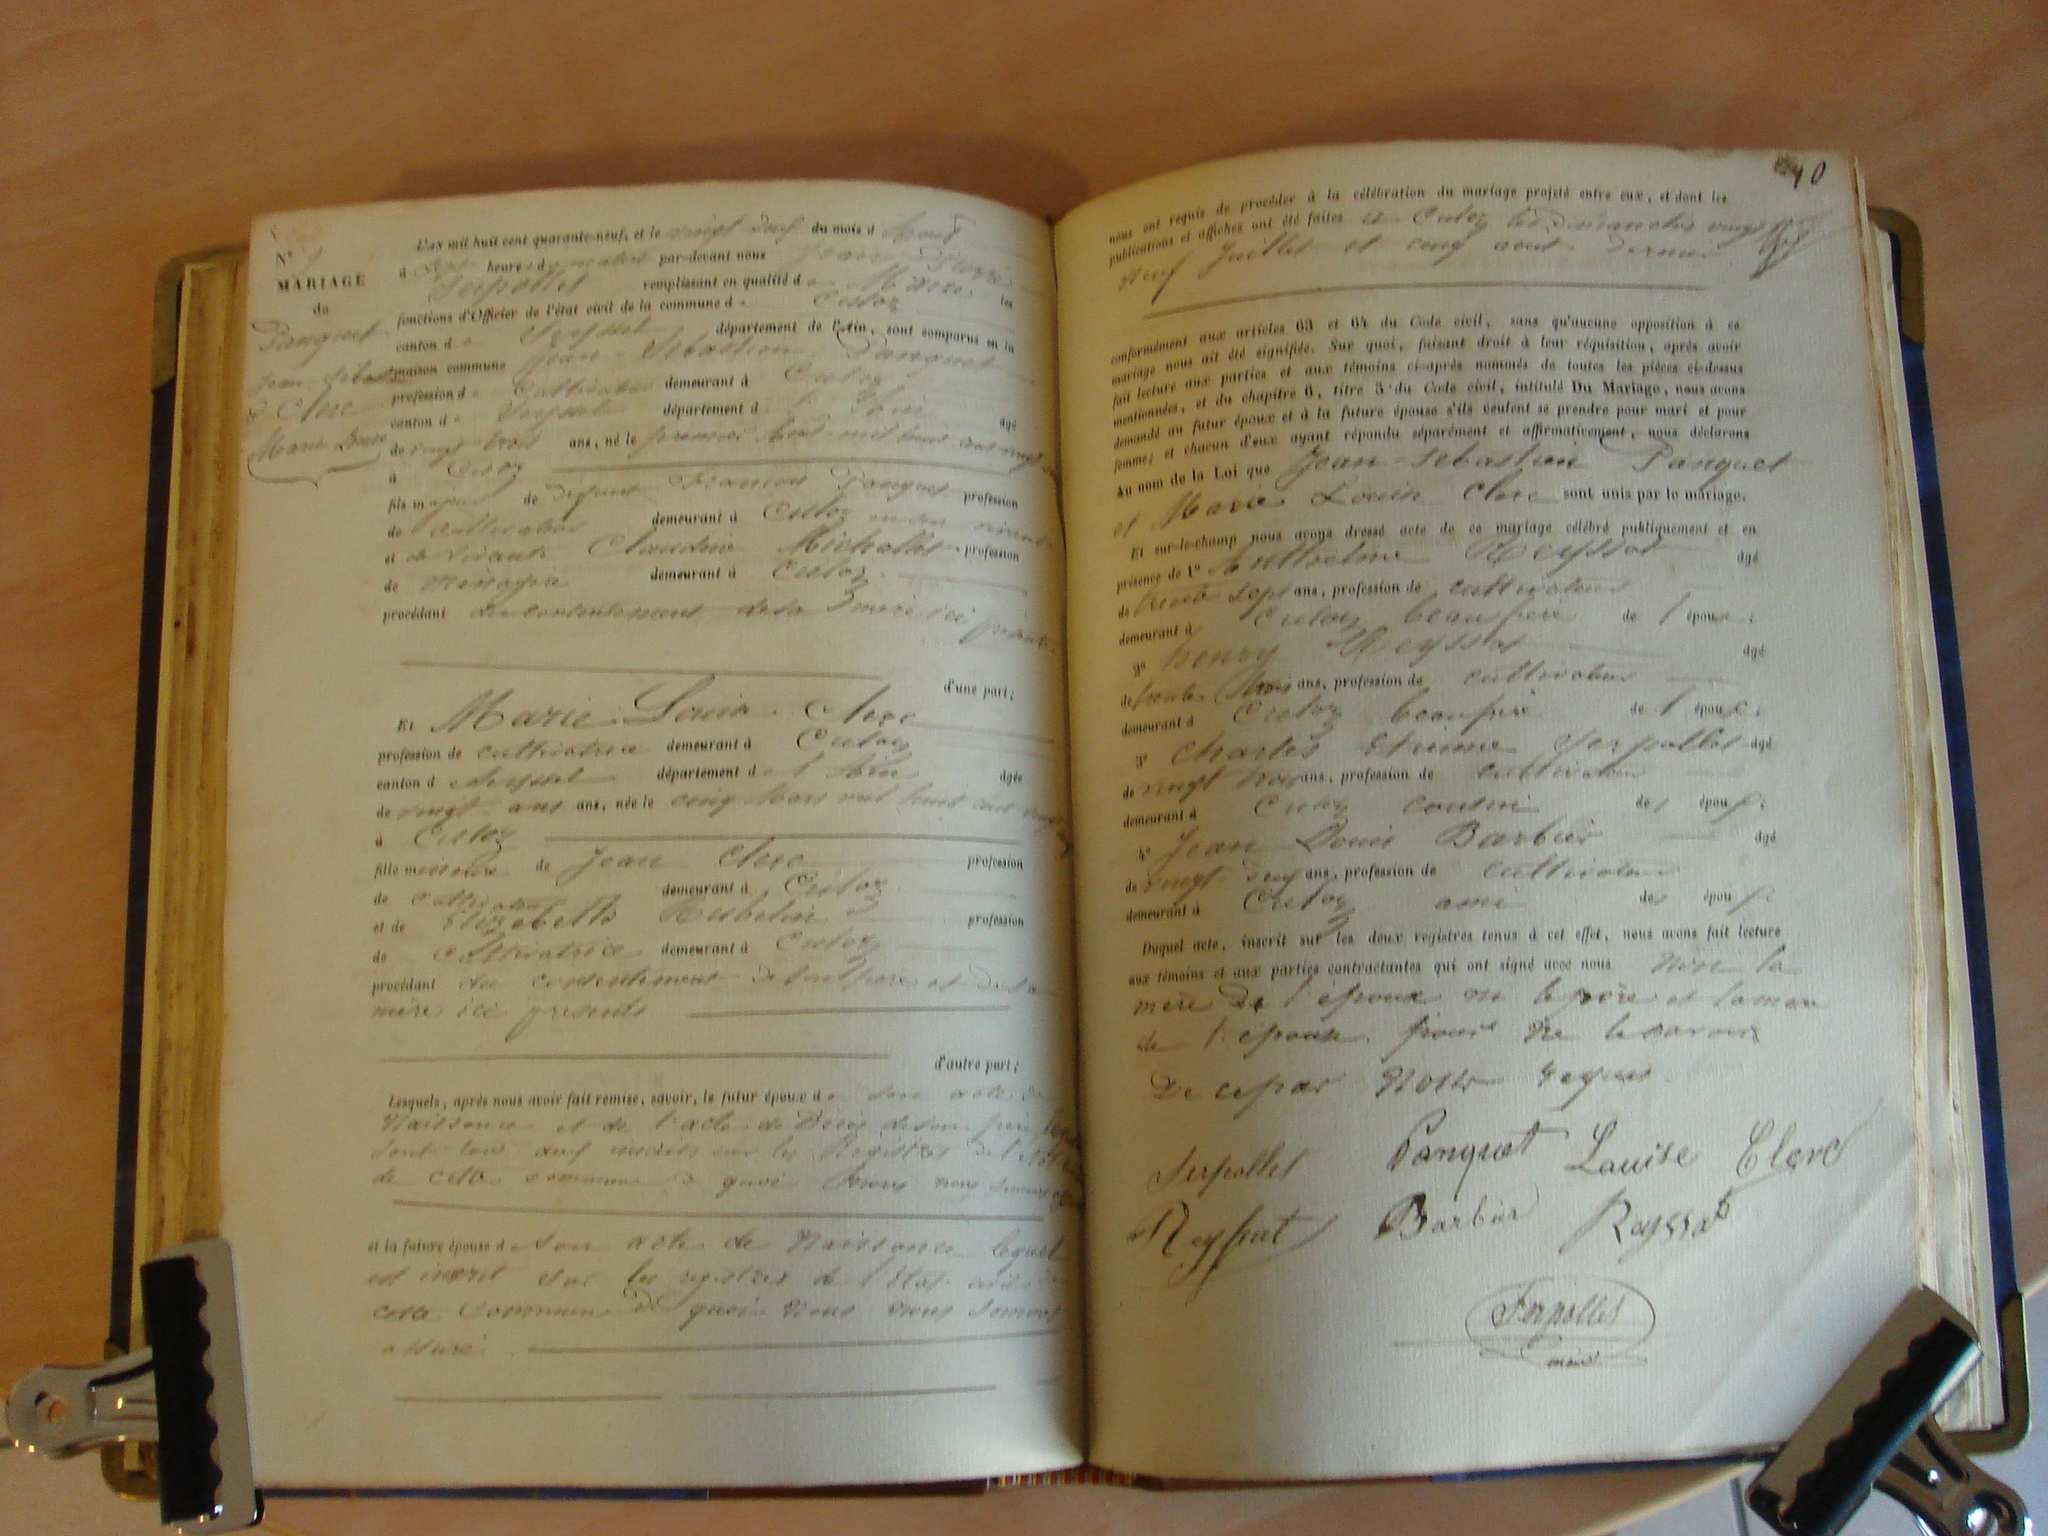 N°
MARIAGE
de
Panquet
Jean Sébastien
& Clerc
Marie Louise
L'AN mil huit cent quarante-neuf, et le vingt du mois d Aout
à heures d matin par-devant nous Jean Pierre
Serpollet remplissant en qualité de Maire les
fonctions d'Officier de l'état civil de la commune de Culoz
canton de Seyssel département de l'Ain, sont comparus en la
maison commune Jean-Sébastien Panquet
profession de Cultivateur demeurant à Culoz
canton de Seyssel département de l'Ain âgé
de vingt trois ans, né le premier mil huit cent vingt
à Culoz
fils majeur de défunt François Panquet profession
de cultivateur demeurant à Culoz en son vivant
et de vivante Claudine profession
de ménagère demeurant à Culoz
procédant du consentement de sa mère ici présente
d'une part;
Et Marie Louise Clerc
profession de cultivatrice demeurant à Culoz
canton de Seyssel département de l'Ain âgée
de vingt ans ans, née le cinq Mars mil huit cent vingt
à Culoz
fille mineure de Jean Clerc profession
de cultivateur demeurant à Culoz
et de Elizabeth profession
de cultivatrice demeurant à Culoz
procédant du consentement de son père et de sa
mère ici présents
d'autre part;
Lesquels, après nous avoir fait remise, savoir, le futur époux de son acte de
Naissance et de l'acte de Décès de son père
sont tous deux inscrits sur les Registres de l'état
de cette commune de quoi nous nous sommes
et la future épouse de son acte de Naissance lequel
est inscrit sur les registres de l'état civil de
cette Commune de quoi Nous nous sommes
assuré
40
nous ont requis de procéder à la célébration du mariage projeté entre eux, et dont les
publications et affiches ont été faites à Culoz les dimanches vingt
neuf Juillet et cinq aout dernier
conformément aux articles 63 et 64 du Code civil, sans qu'aucune opposition à ce
mariage nous ait été signifiée. Sur quoi, faisant droit à leur réquisition, après avoir
fait lecture aux parties et aux témoins ci-après nommés de toutes les pièces ci-dessus
mentionnées, et du chapitre 6, titre 5 du Code civil, intitulé Du Mariage, nous avons
demandé au futur époux et à la future épouse s'ils veulent se prendre pour mari et pour
femme; et chacun d'eux ayant répondu séparément et affirmativement, nous déclarons
Au nom de la Loi que Jean-Sébastien Panquet
et Marie Louise Clerc sont unis par le mariage.
Et sur-le-champ nous avons dressé acte de ce mariage célébré publiquement et en
présence de 1° Anthelme Reyssat âgé
de trente sept ans, profession de cultivateur
demeurant à Culoz beaupère de l'époux;
2° henry Reyssat âgé
de trente trois ans, profession de cultivateur
demeurant à Culoz beaupère de l'époux;
3° Charles Etienne Serpollet âgé
de vingt trois ans, profession de cultivateur
demeurant à Culoz cousin des époux;
4° Jean Louis Barbier âgé
de vingt ans, profession de cultivateur
demeurant à Culoz ami des époux;
Duquel acte, inscrit sur les deux registres tenus à cet effet, nous avons fait lecture
aux témoins et aux parties contractantes qui ont signé avec nous non la
mère de l'époux ni le père et la mère
de l'épouse pour ne le savoir
De ce par Nous requis
Serpollet Panquet Louise Clerc
Reyssat Barbier Reyssat
Serpollet
maire